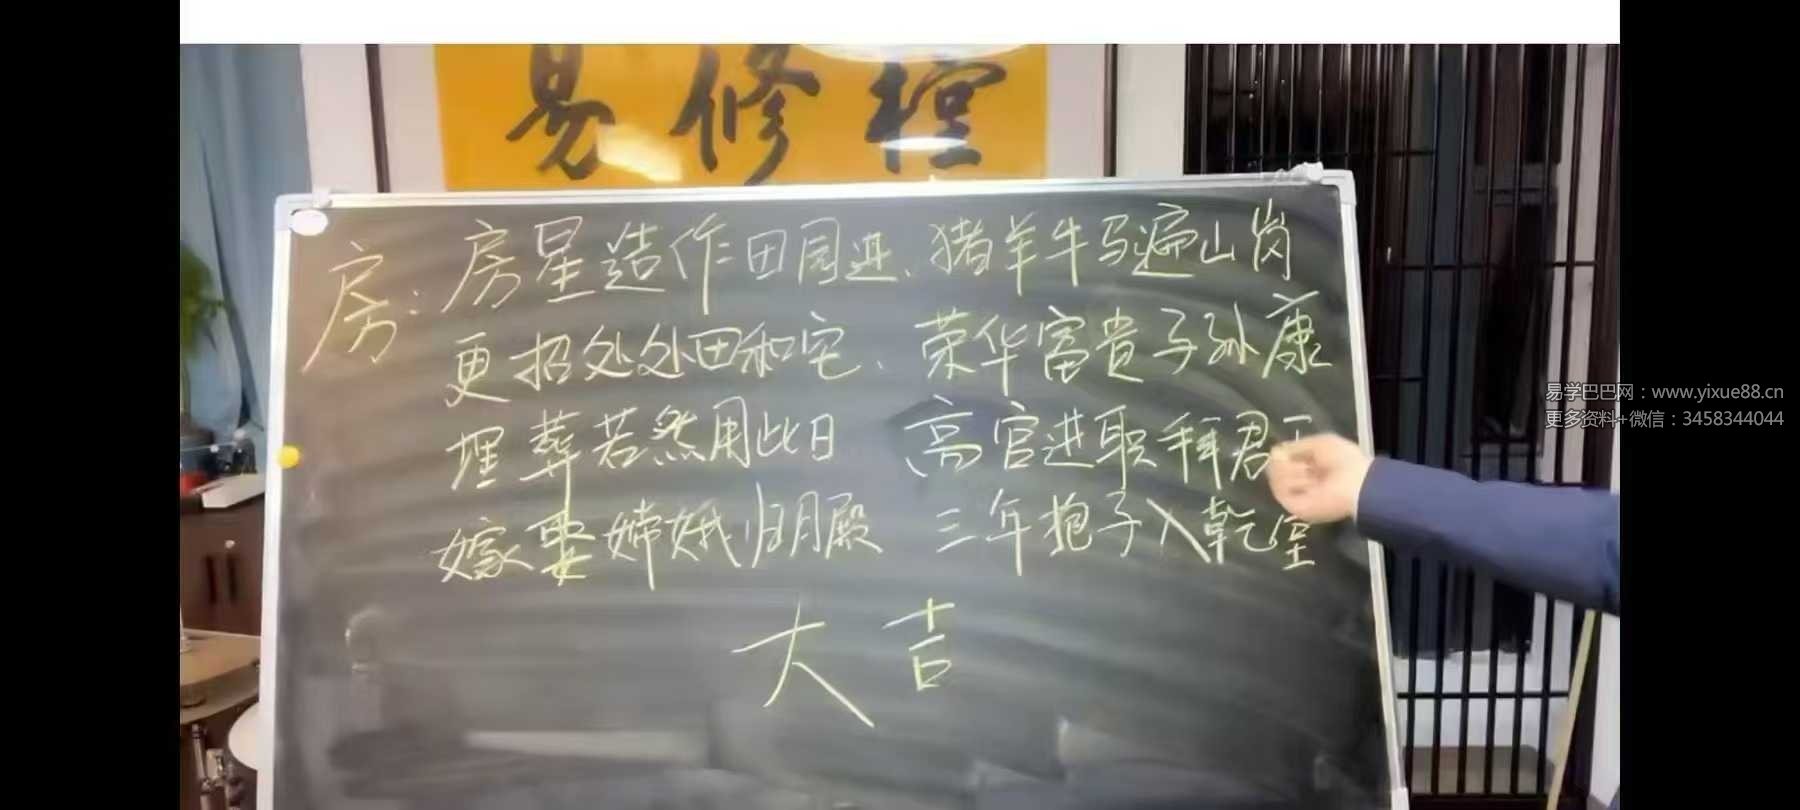 易修桓
房：房星造作田园进、猪羊牛马遍山岗
更招处处田和宅、荣华富贵子孙康
埋葬若然用此日 高官进职拜君王
嫁娶嫦娥归月殿 三年抱子入乾堂
大吉
易学巴巴网：www.yixue88.cn
更多资料+微信：3458344044